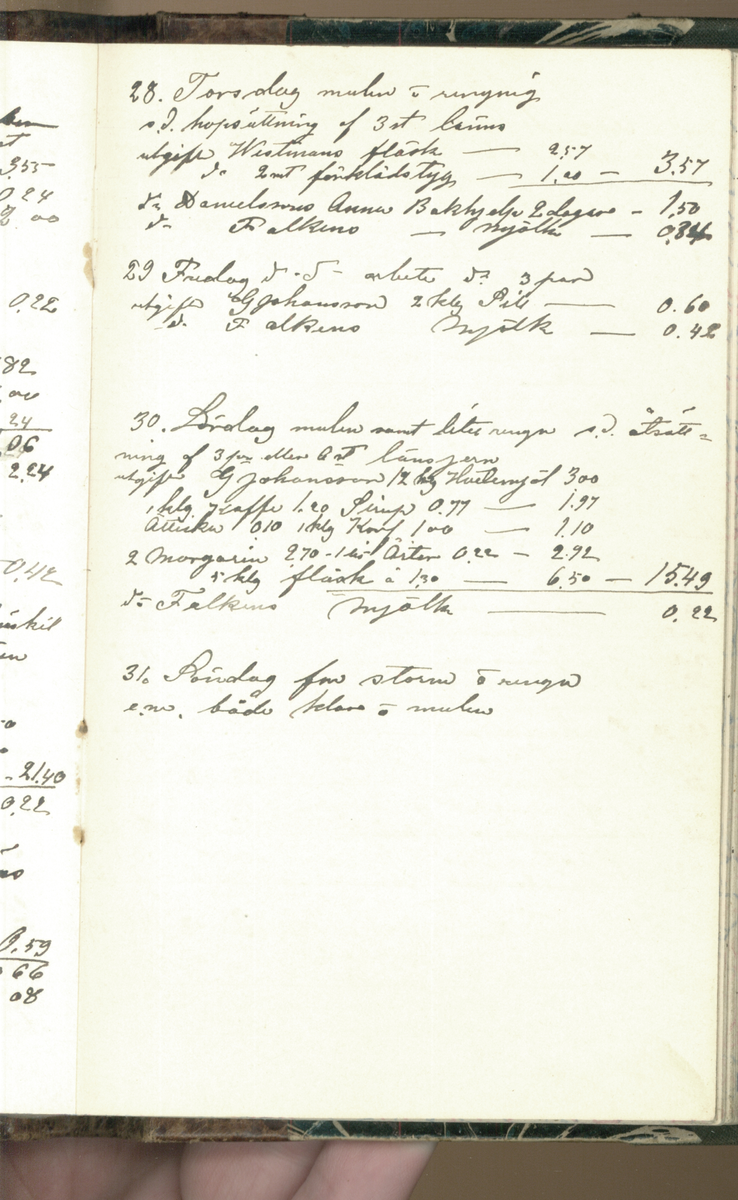 355
0.24
0.22
82
24
06
2.24
0.42
21.40
0.22
0.59
66
08
28. Torsdag mulen o rengnig
s.d. hopsättning af 3 st länns
utgift Westmans fläsk — 2.57
do 2 mt förklädstyg — 1.00 — 3.57
do Danielssons Anna Bakhjelp 2 dagar - 1.50
do Falkens — Mjölk — 0.84
29 Fredag d - d - arbete do 3 par
utgift G Johansson 2 klg Sill — 0.60
do Falkens Mjölk — 0.42
30. Lördag mulen samt litet rengn s.d. åtsätt=
ning af 3 par eller 6 st länsjern
utgift G Johansson 12 klg Hvetemjöl 3.00
1 klg Kaffe 1.20 Sirup 0.77 — 1.97
Ätticka 0.10 1 klg Korf 1.00 — 1.10
2 Morgarin 2.70 - 1 Ärter 0.22 — 2.92
5 klg fläsk à 1.30 — 6.50 — 15.49
do Falkens Mjölk — 0.22
31. Söndag fm storm o rengn
e.m. både klart o mulen